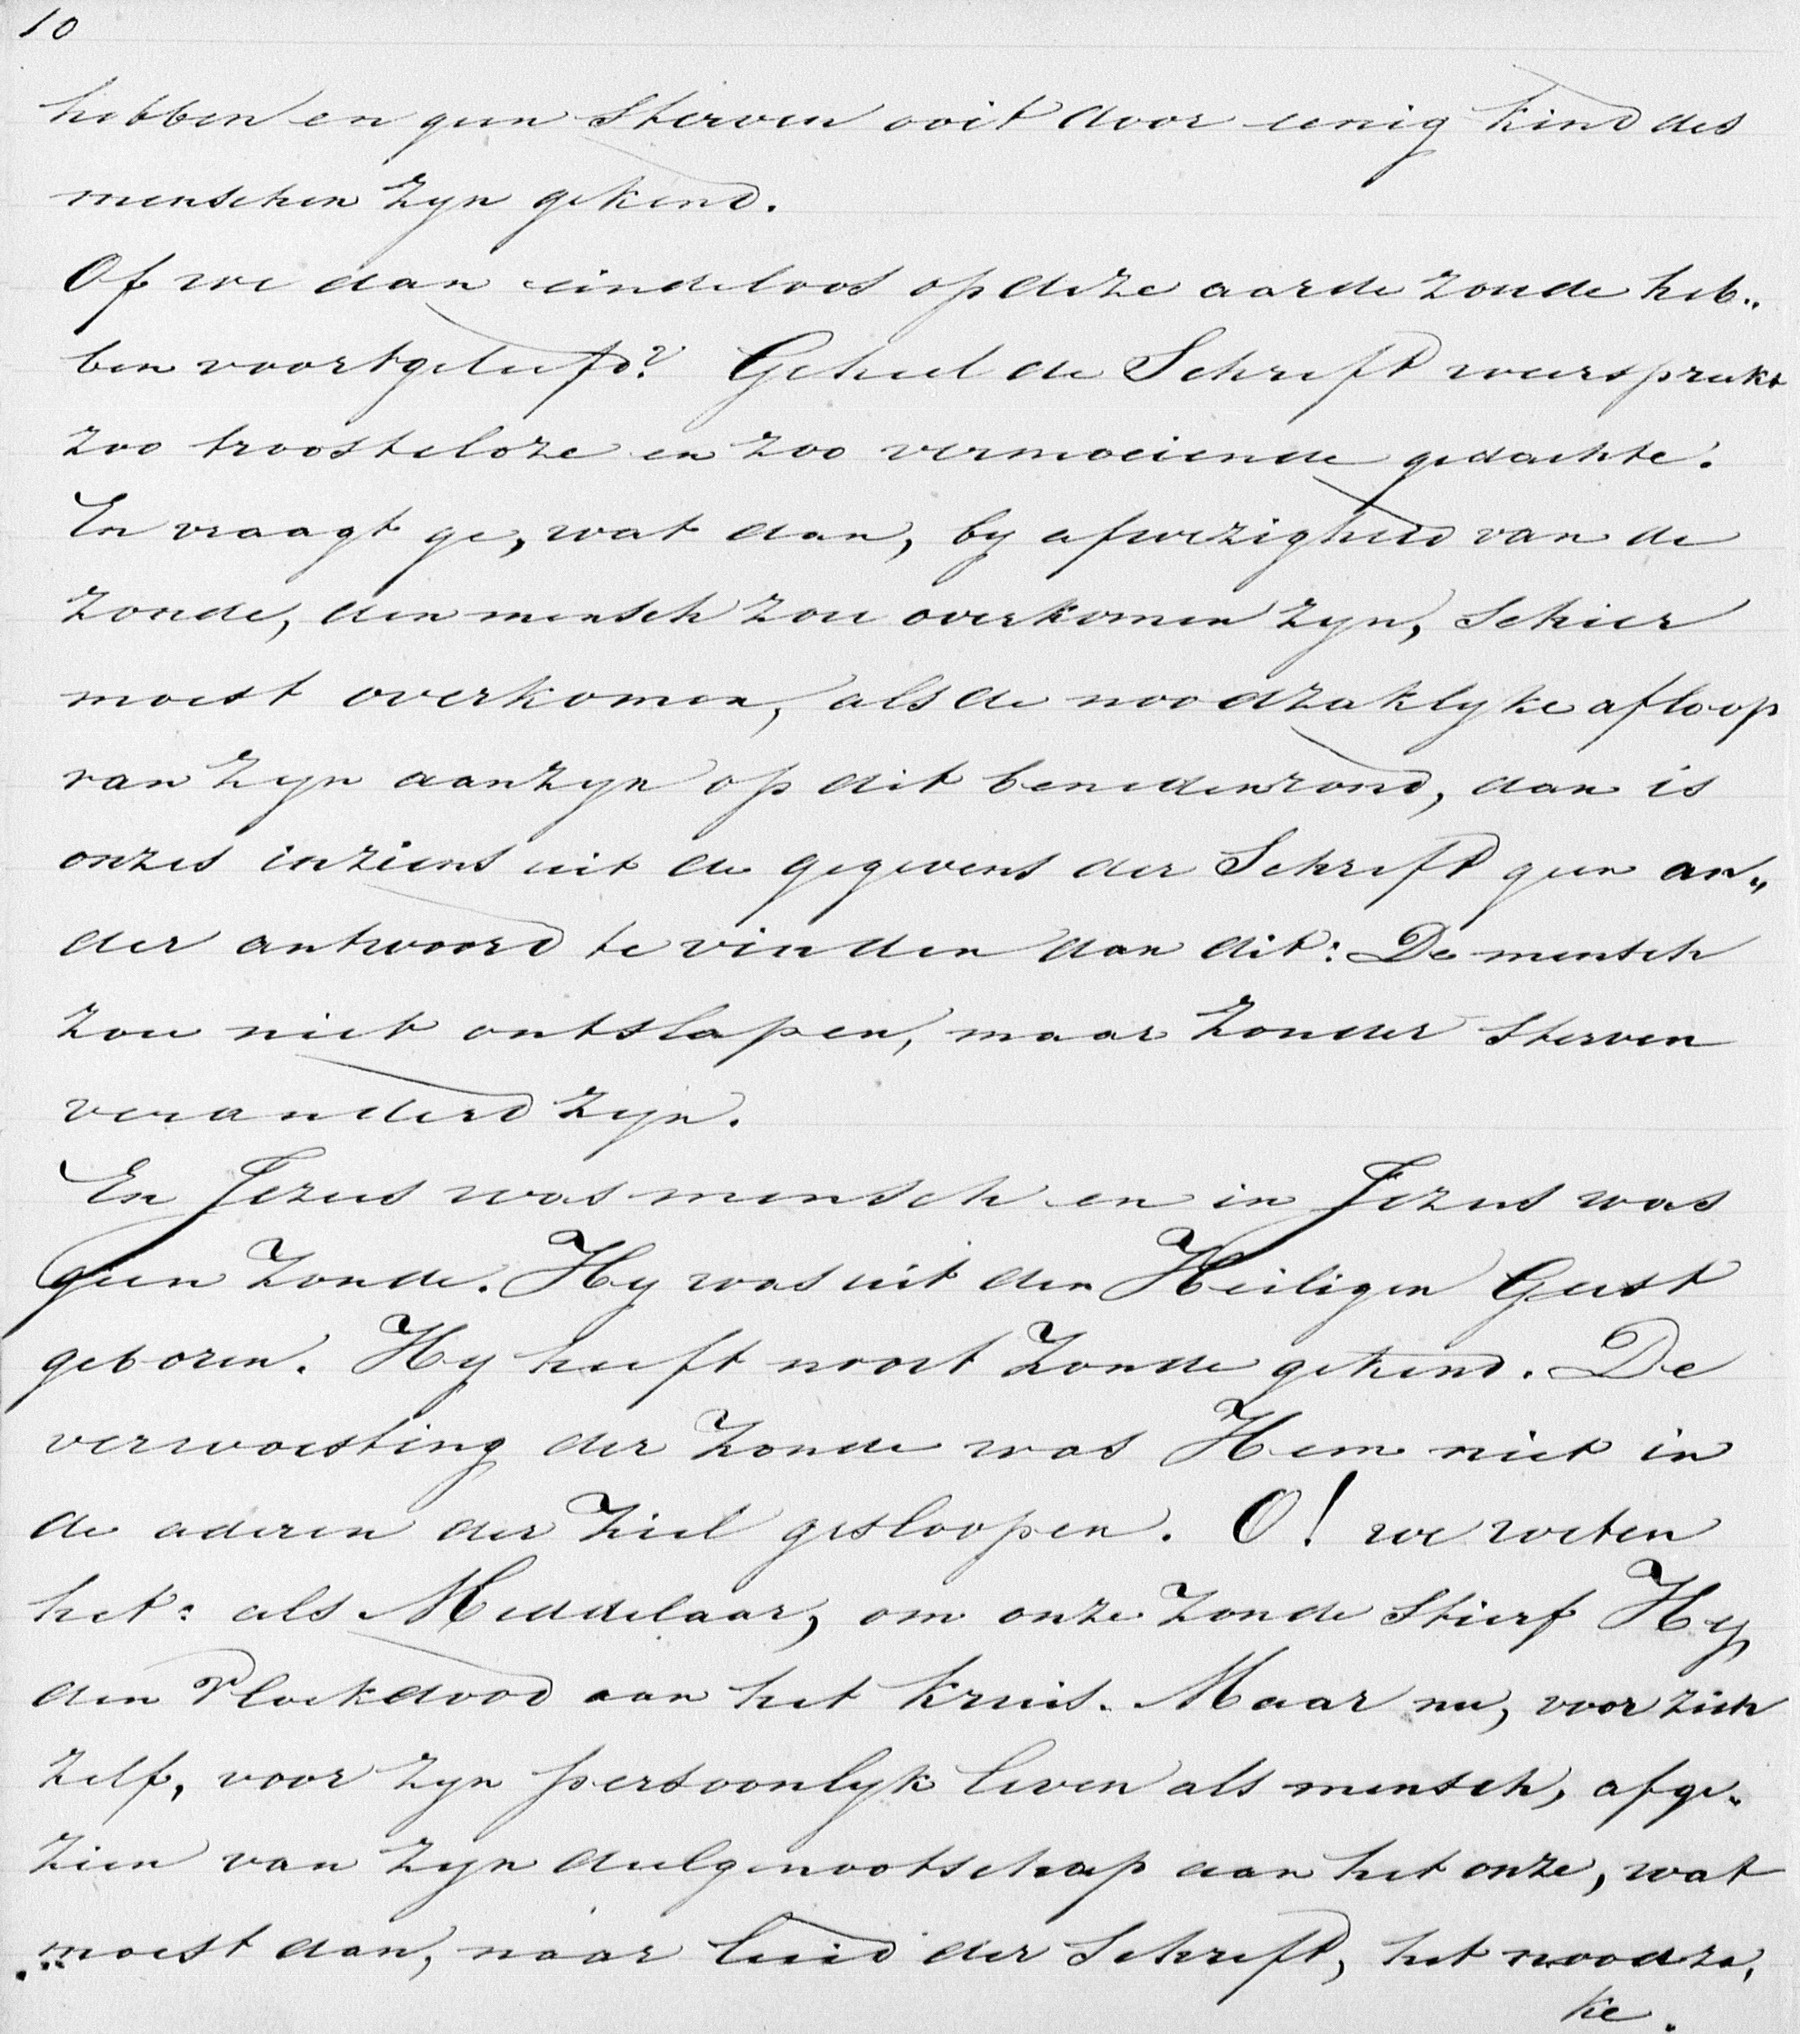 10
hebben en geen sterven ooit door eenig kind des
menschen zyn gekend.
Of we dan eindeloos op deze aarde zoude heb„
ben voortgeleefd? Geheel de Schrift weerspreekt
zoo troostelooze en zoo vermoeiende gedachte.
En vraagt ge, wat dan, by afwezigheid van de
zonde, den mensch zou overkomen zyn, schier
moest overkomen, als de noodzaklyke afloop
van zyn aanzyn op dit benedenrond, dan is
onzes inziens uit de gegevens der Schrift geen an„
der antwoord te vinden dan dit: De mensch
zou niet ontslapen, maar zonder sterven
veranderd zyn.
En Jezus was mensch en in Jezus was
geen zonde. Hy was uit den Heiligen Geest
geboren. Hy heeft nooit zonde gekend. De
verwoesting der zonde was Hem niet in
de aderen der ziel geslopen. O! we weten
het: als Middelaar, om onze zonde stierf Hy
den Vloekdood aan het kruis. Maar nu, voor zich
zelf, voor zyn persoonlyk leven als mensch, afge„
zien van zyn deelgenootschap aan het onze, wat
moest dan, naar luid der Schrift, het noodza„
ke.